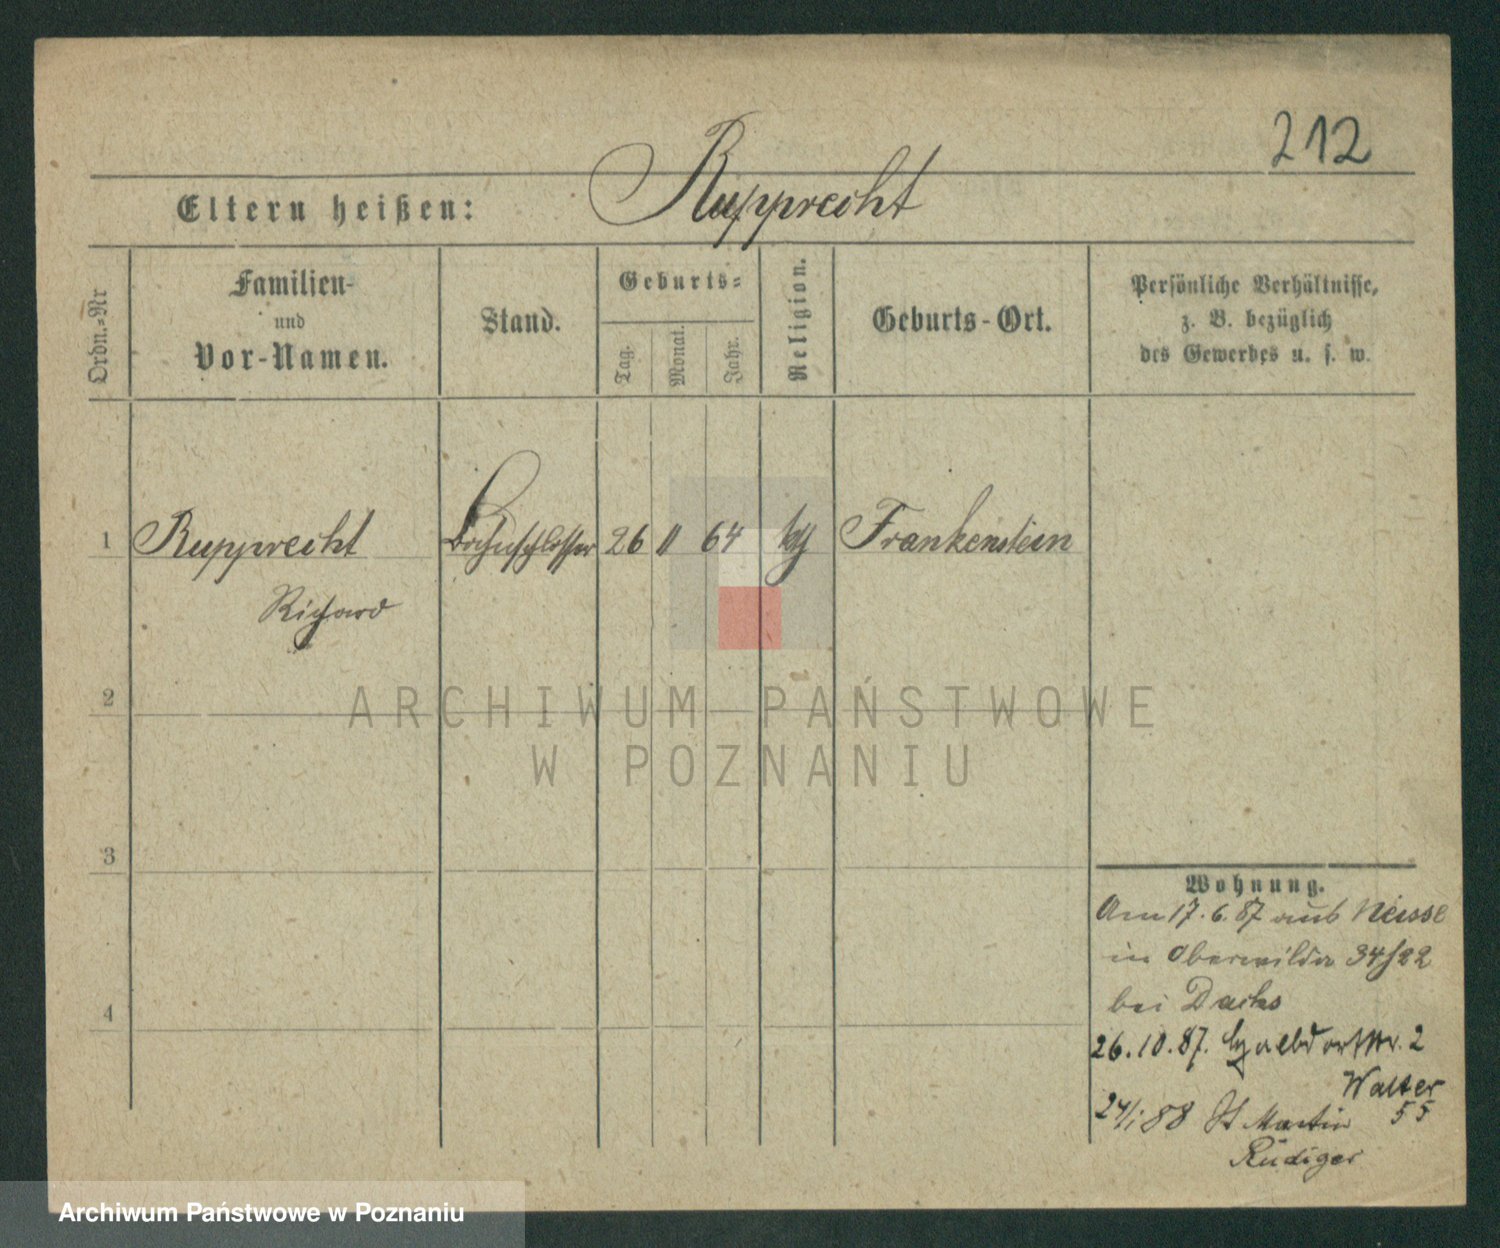 212
Eltern heißen: Rupprecht
Ordn.-Nr
Familien-
und
Vor-Namen.
Stand.
Geburts-
Tag.
Monat.
Jahr.
Religion.
Geburts-Ort.
Persönliche Verhältnisse,
z. B. bezüglich
des Gewerbes u. s. w.
1 Rupprecht 26 11 64 Frankenstein
Richard
2
3
4
Wohnung.
Am 17.6.87 aus Neisse
in Oberwilda 34/22
bei Dachs
26.10.87. 2
Walter
24/1 88 St Martin 55
Rüdiger
ARCHIWUM PAŃSTWOWE
W POZNANIU
Archiwum Państwowe w Poznaniu